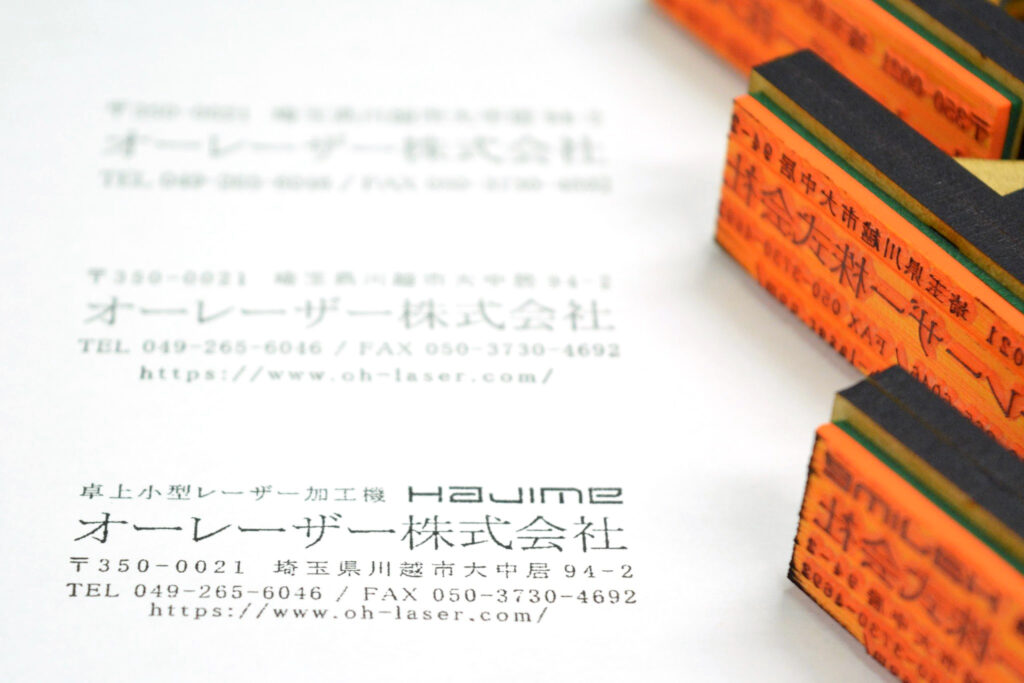 〒350-0021 埼玉県川越市大中居94-2
オーレーザー株式会社
TEL 049-265-6046 / FAX 050-3730-4692
〒350-0021 埼玉県川越市大中居94-2
オーレーザー株式会社
TEL 049-265-6046 / FAX 050-3730-4692
https://www.oh-laser.com/
卓上小型レーザー加工機 HAJIME
オーレーザー株式会社
〒350-0021 埼玉県川越市大中居94-2
TEL 049-265-6046 / FAX 050-3730-4692
https://www.oh-laser.com/